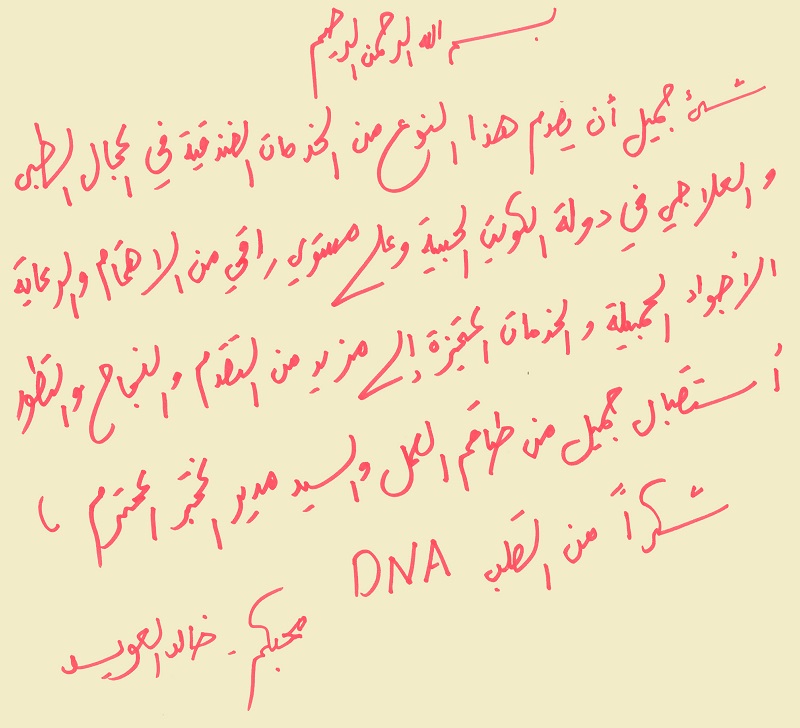 بسم الله الرحمن الرحيم
شئ جميل أن يقدم هذا النوع من الخدمات الفندقية في المجال الطبي
والعلاجي في دولة الكويت الحبيبة وعلى مستوي راقي من الاهتمام والرعاية
الأجواء المحيطة والخدمات المتميزة إلى مزيد من التقدم والنجاح والتطور
أستقبال جميل من طاقم العمل والسيد مدير المختبر المحترم
شكراً من القلب DNA
محبكم - خالد العويد